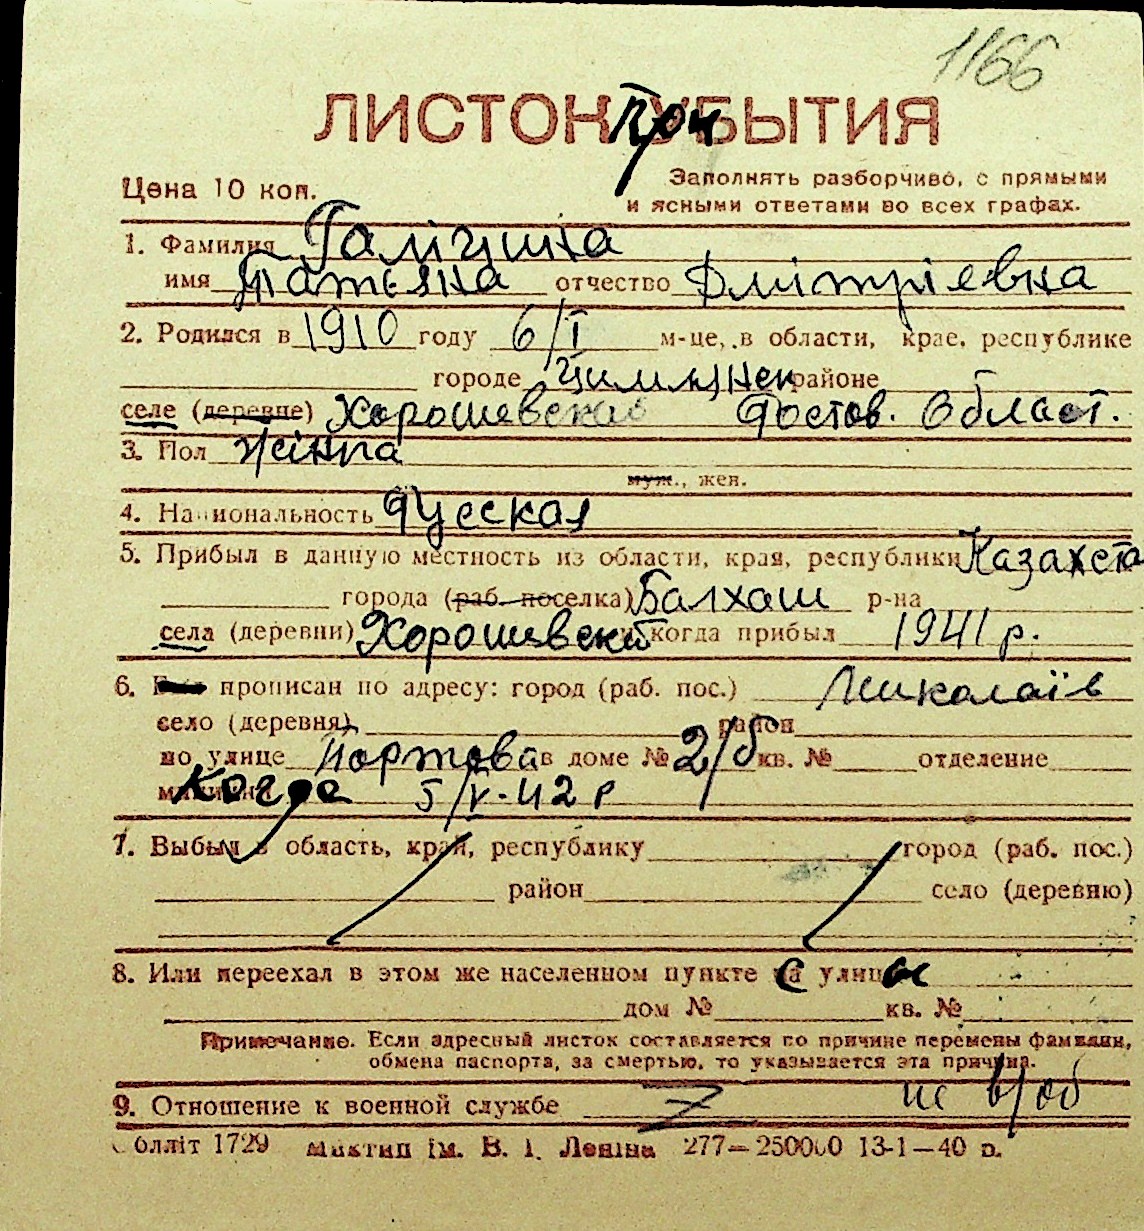 1166
ЛИСТОК При БЫТИЯ
Цена 10 коп.
Заполнять разборчиво, с прямыми
и ясными ответами во всех графах.
1. Фамилия Галіцина
имя Татьяна отчество Дмітріевна
2. Родился в 1910 году 6/I м-це, в области, крае, республике
городе Цимлянск районе
селе (деревне) Хорошевская Ростов. Област.
3. Пол жінка
муж., жен.
4. Национальность Русская
5. Прибыл в данную местность из области, края, республики Казахста
города (раб. поселка) Балхаш р-на
села (деревни) Хорошевской когда прибыл 1941 р.
6. прописан по адресу: город (раб. пос.) Миколаїв
село (деревня) район
по улице Портова в доме № 2/б кв. № отделение
милиции когда 5/V-42 р
7. Выбыл в область, край, республику город (раб. пос.)
район село (деревню)
8. Или переехал в этом же населенном пункте с улицы
дом № кв. №
Примечание. Если адресный листок составляется по причине перемены фамилии,
обмена паспорта, за смертью, то указывается эта причина.
9. Отношение к военной службе не в/об
Обліт 1729 Миктип ім. В. І. Леніна 277—250000 13-1—40 р.